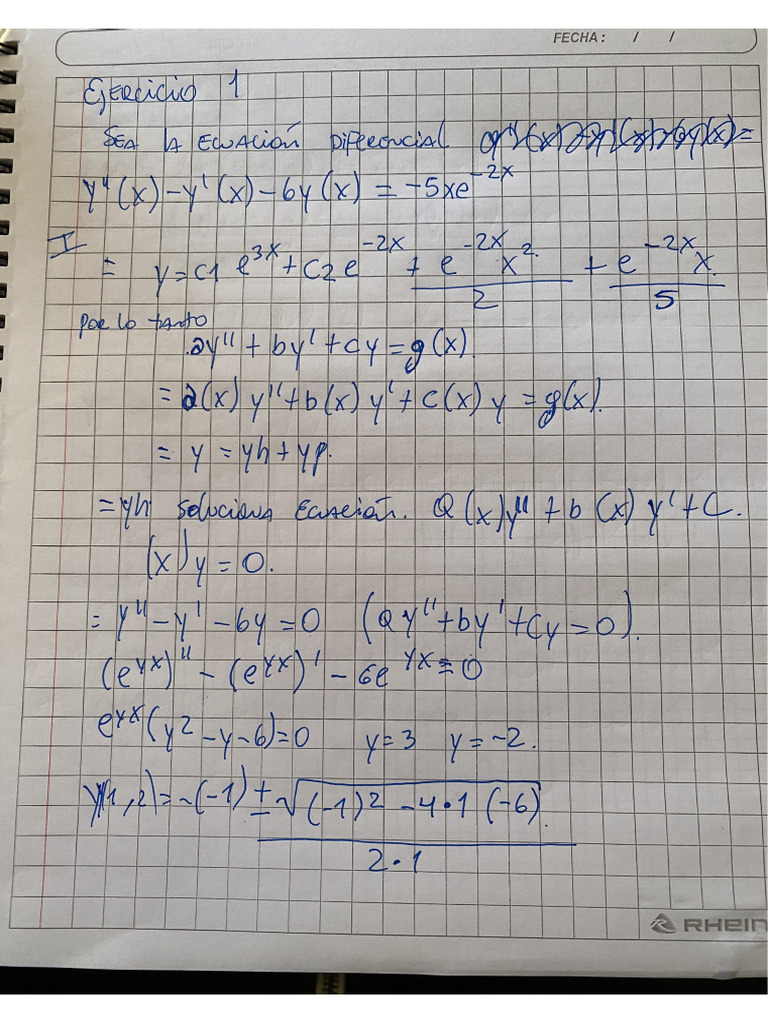 FECHA: / /
Ejercicio 1
Sea la Ecuación Diferencial
y''(x) - y'(x) - 6y(x) = -5xe^{-2x}
I = y = c1 e^{3x} + c2 e^{-2x} + \frac{e^{-2x} x^2}{2} + \frac{e^{-2x} x}{5}
por lo tanto
ay'' + by' + cy = g(x)
= a(x) y'' + b(x) y' + c(x) y = g(x).
= y = yh + yp.
= yh Soluciona Ecuación. a(x)y'' + b(x) y' + c.
(x) y = 0.
= y'' - y' - 6y = 0 (ay'' + by' + cy = 0).
(e^{γx})'' - (e^{γx})' - 6e^{γx} = 0
e^{γx}(γ^2 - γ - 6) = 0 γ = 3 γ = -2.
γ(1,2) = \frac{-(-1) ± \sqrt{(-1)^2 - 4·1(-6)}}{2·1}
RHEIN